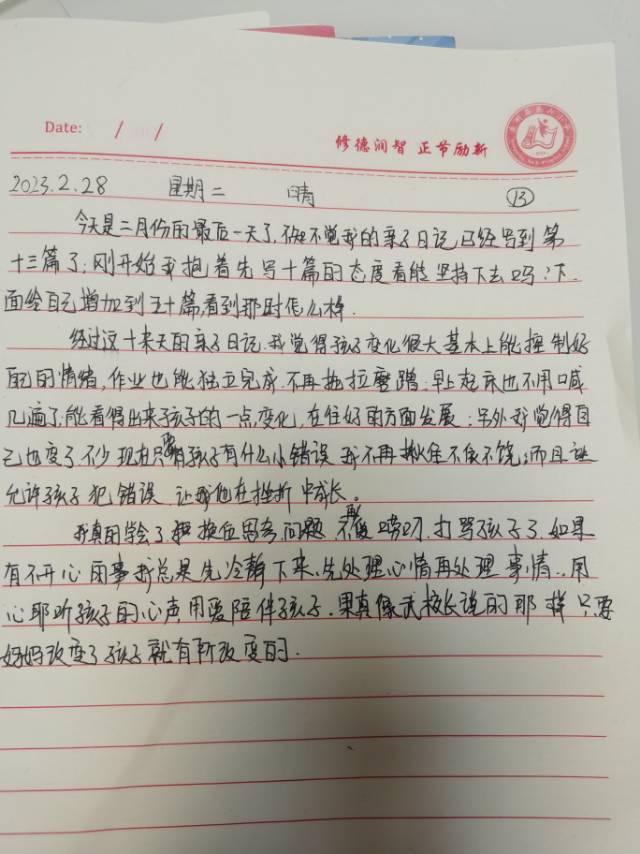 Date: / /
修德润智 正节励新
2023.2.28 星期二 晴 ⑬
今天是二月份的最后一天了,不知不觉我的亲子日记已经写到第
十三篇了,刚开始我抱着先写十篇的态度看能坚持下去吗?下
面给自己增加到五十篇,看到那时怎么样.
经过这十来天的亲子日记,我觉得孩子变化很大基本上能控制好
自己的情绪,作业也能独立完成,不再拖拉磨蹭.早上起床也不用喊
几遍了,能看得出来孩子的一点变化,在住好的方面发展;另外我觉得自
己也变了不少现在只要孩子有什么小错误我不再揪住不依不饶;而且
允许孩子犯错误让他在挫折中成长。
我真的学会了换位思考问题 不再唠叨.打骂孩子了.如果
有不开心的事我总是先冷静下来,先处理心情再处理事情.用
心聆听孩子的心声用爱陪伴孩子.果真像武校长说的那样只要
妈妈改变了孩子就有所改变的.